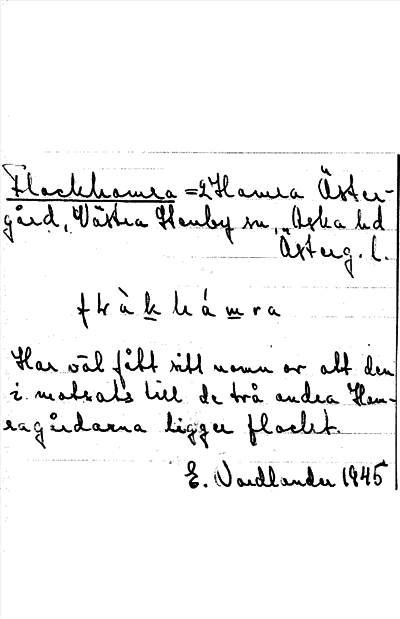 Flackhamra = 2 Hamra Öster-
gård, Västra Stenby sn, Aska hd
Österg. l.
f l à k h á m r a
Har väl fått sitt namn av att den
i motsats till de två andra Ham-
ragårdarna ligger flackt.
E. Nordlander 1945